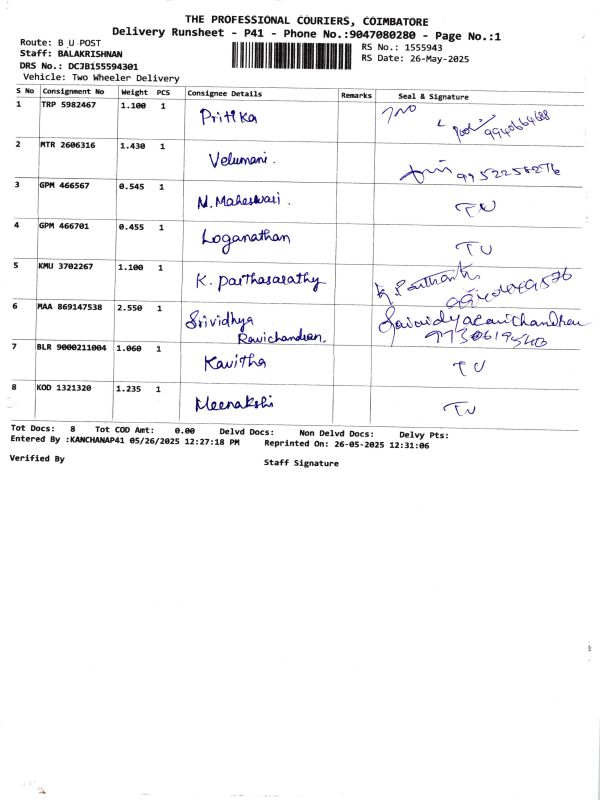 THE PROFESSIONAL COURIERS, COIMBATORE
Delivery Runsheet - P41 - Phone No.:9047080280 - Page No.:1
Route: B U POST
RS No.: 1555943
Staff: BALAKRISHNAN
RS Date: 26-May-2025
DRS No.: DCJB155594301
Vehicle: Two Wheeler Delivery
S No Consignment No Weight PCS Consignee Details Remarks Seal & Signature
1 TRP 5982467 1.100 1 Pritika
9940664688
2 MTR 2606316 1.430 1 Velumani.
9952258276
3 GPM 466567 0.545 1 M. Maheswari.
4 GPM 466701 0.455 1 Loganathan
5 KMU 3702267 1.100 1 K. Parthasarathy
6 MAA 869147538 2.550 1 Srividhya
Ravichandran.
7 BLR 9000211004 1.060 1 Kavitha
8 KOD 1321320 1.235 1 Meenakshi
Tot Docs: 8 Tot COD Amt: 0.00 Delvd Docs: Non Delvd Docs: Delvy Pts:
Entered By :KANCHANAP41 05/26/2025 12:27:18 PM Reprinted On: 26-05-2025 12:31:06
Verified By
Staff Signature